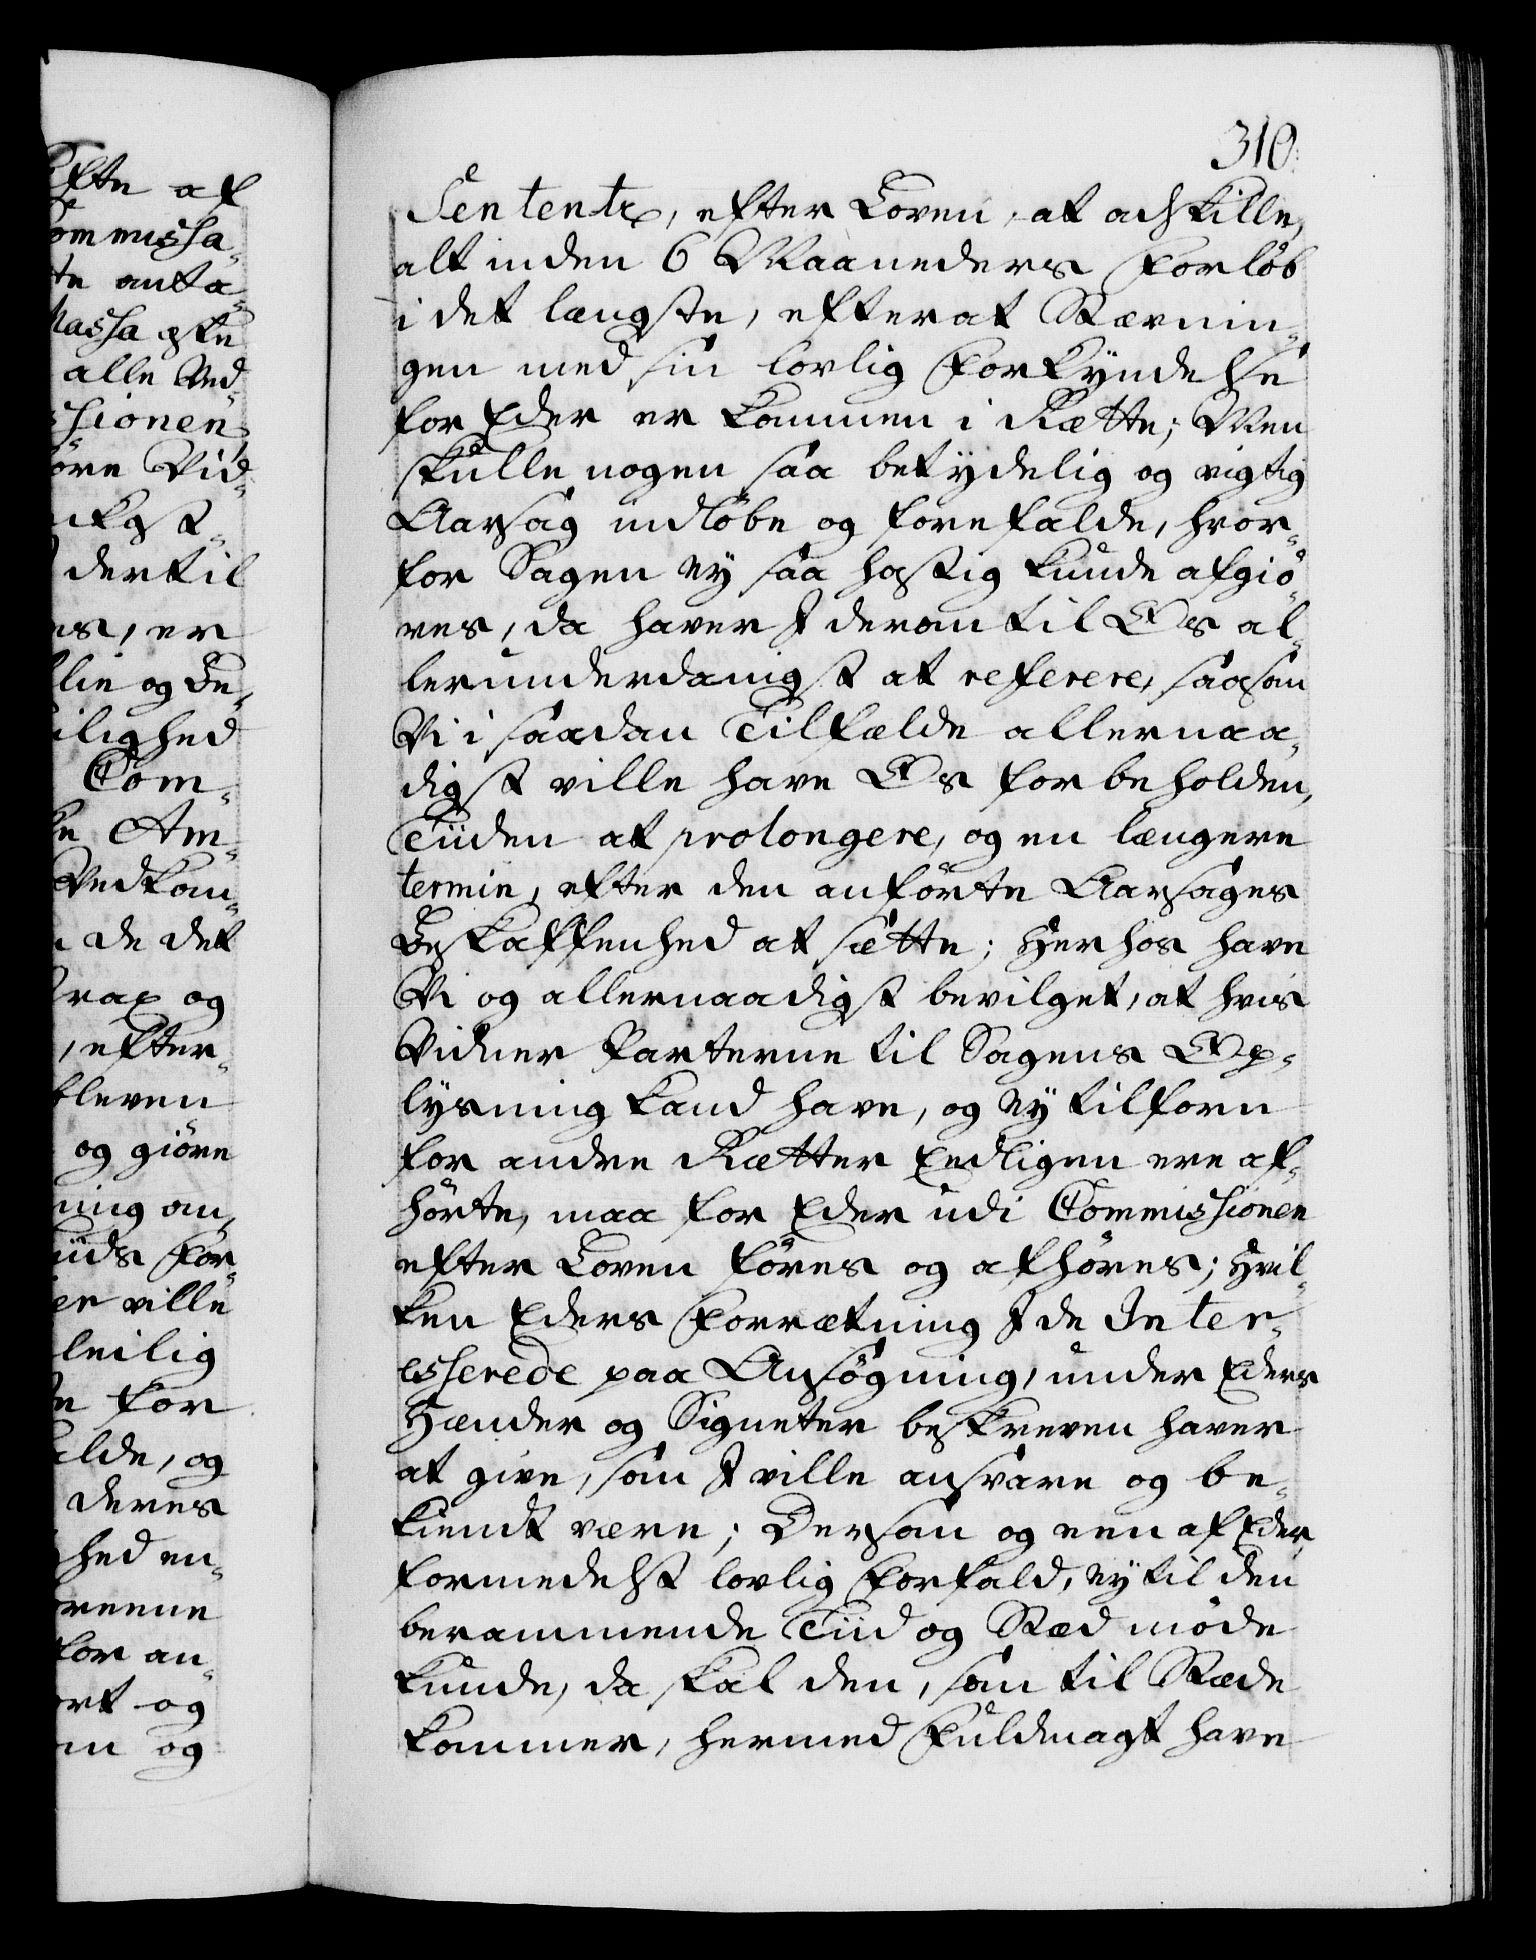 310.
Sententz, efter Loven, at adskille,
alt inden 6 Maaneders Forløb
i det længste, efterat Stævnin-
gen med sin lovlig Forkyndelse
for Eder er kommen i Rætte; Men
skulle nogen saa betydelig og vigtig
Aarsag indløbe og forefalde, hvor-
for Sagen ey saa hastig kunde afgiö-
res, da haver I derom til Os al-
lerunderdanigst at referere, saasom
Vi i saadan Tilfælde allernaa-
digst ville have Os forbeholden,
Tiiden at prolongere, og en længere
termin, efter den anförte Aarsages
Beskaffenhed at sætte; Herhos have
Vi og allernaadigst bevilget, at hvis
Vidner Parterne til Sagens Op-
lysning kand have, og ey tilforn
for andre Rætter Eedligen ere af-
hörte, maa for Eder udi Commissionen
efter Loven föres og afhöres; Hvil-
ken Eders Forrætning I de Inter-
esserede paa Ansøgning, under Eders
Hænder og Signeter beskreven haver
at give, som I ville ansvare og be-
kiendt være; Dersom og een af Eder,
formedelst lovlig Forfald, ey til den
berammende Tiid og Stæd möde
kunde, da skal den, som til Stæde
kommer, hermed Fuldmagt have